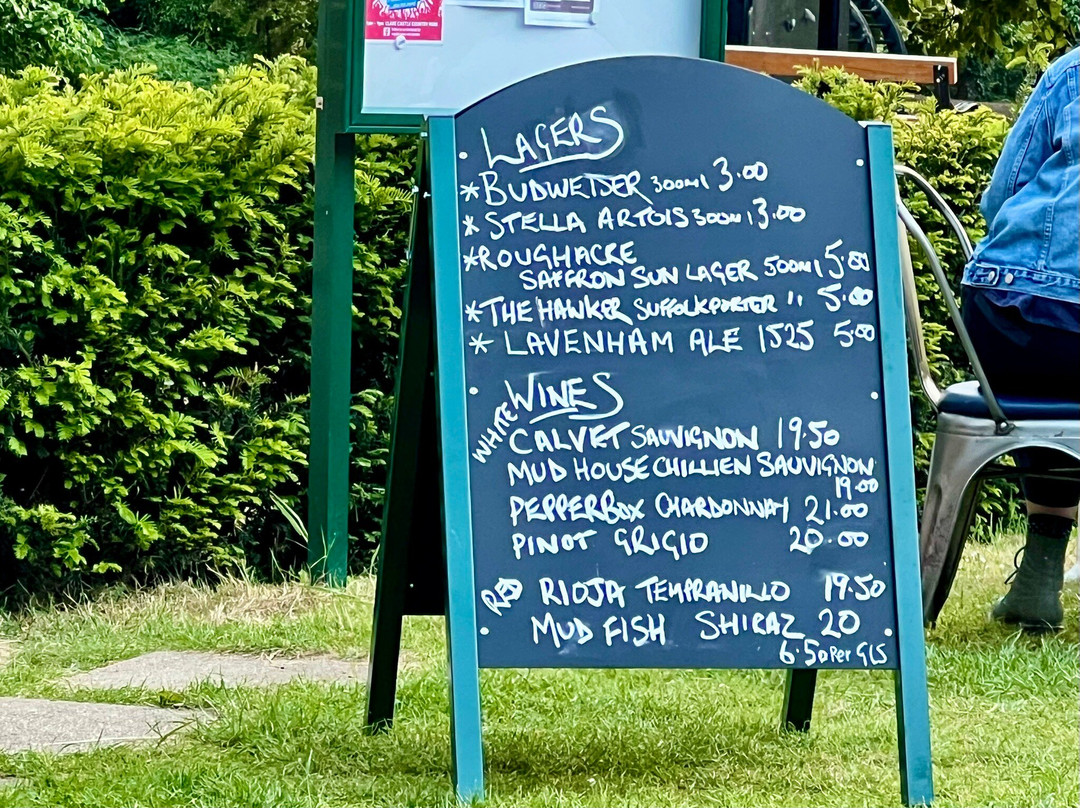 LAGERS
*BUDWEISER 300ml 3.00
* STELLA ARTOIS 300ml 3.00
*ROUGHACRE
SAFFRON SUN LAGER 500ml 5.00
*THE HAWKER SUFFOLK PORTER " 5.00
* LAVENHAM ALE 1525 5.00
WINES
WHITE
CALVET SAUVIGNON 19.50
MUD HOUSE CHILLIEN SAUVIGNON
19.00
PEPPERBOX CHARDONNAY 21.00
PINOT GRIGIO 20.00
RED RIOJA TEMPRANILLO 19.50
MUD FISH SHIRAZ 20
6.50 Per GLS